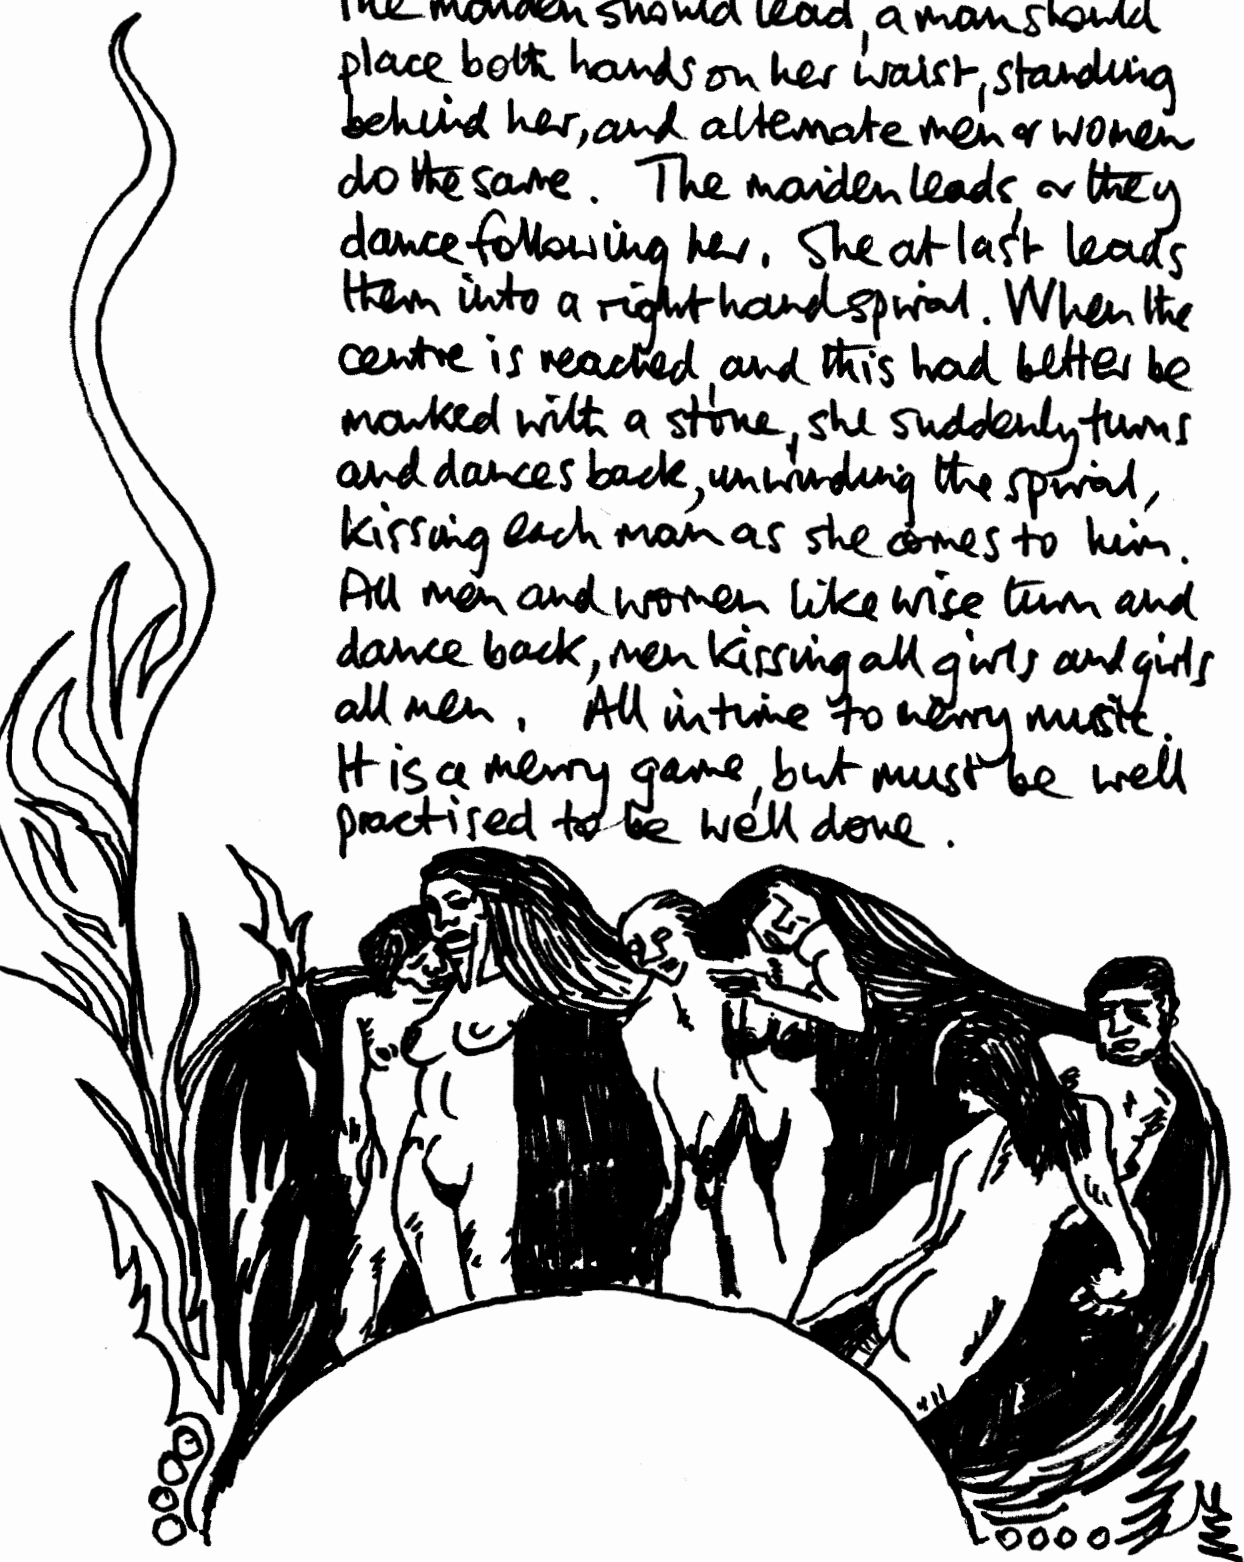 The maiden should lead, a man should
place both hands on her waist, standing
behind her, and alternate men & women
do the same. The maiden leads & they
dance following her. She at last leads
them into a right hand spiral. When the
centre is reached, and this had better be
marked with a stone, she suddenly turns
and dances back, unwinding the spiral,
kissing each man as she comes to him.
All men and women likewise turn and
dance back, men kissing all girls and girls
all men. All in time to merry music.
It is a merry game, but must be well
practised to be well done.